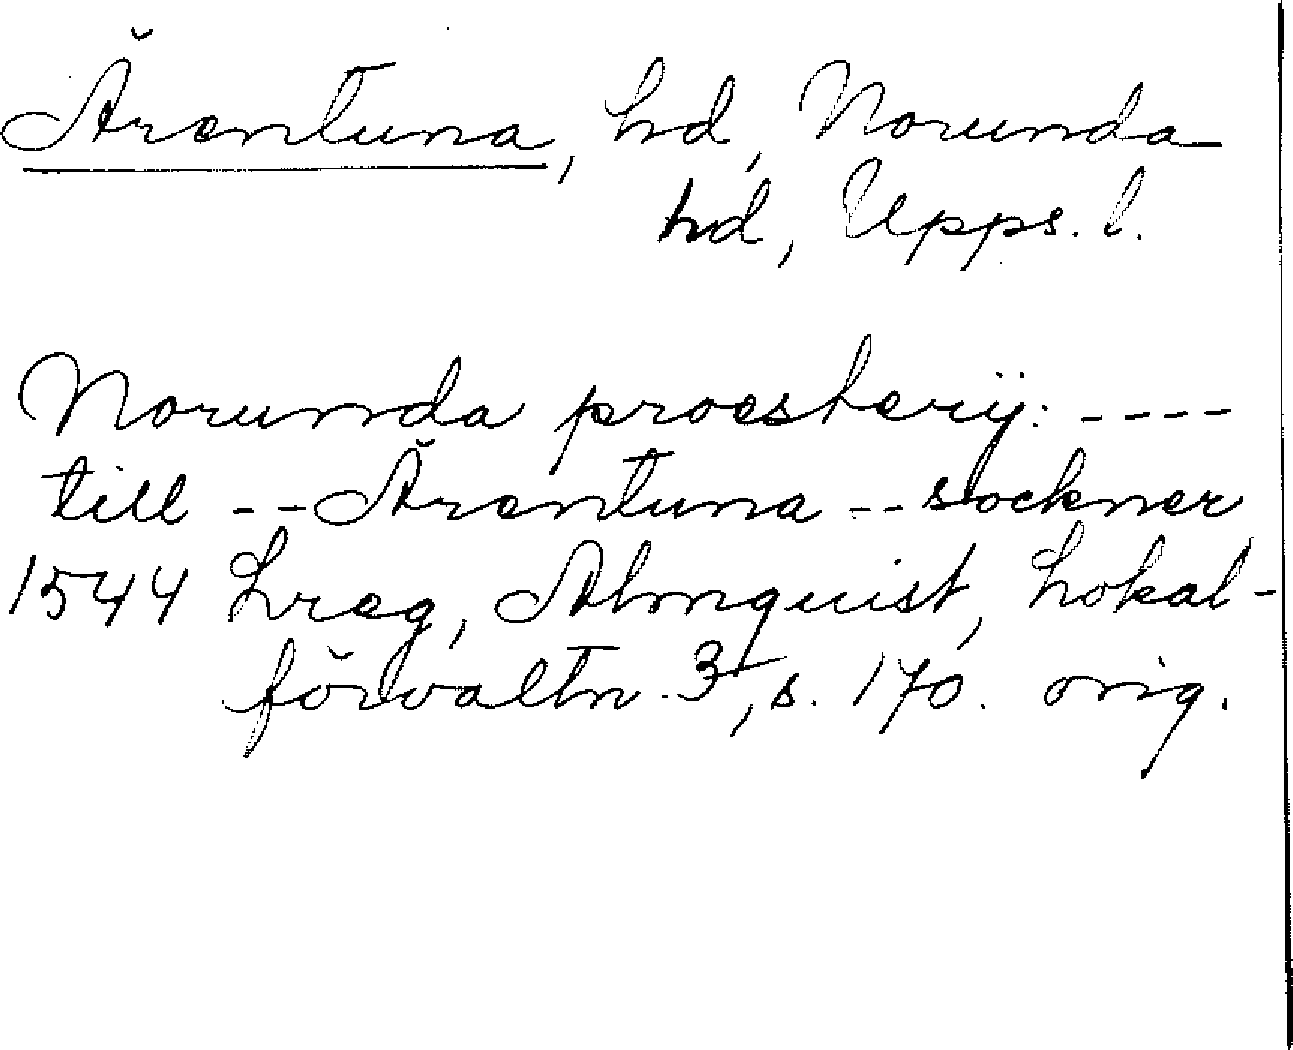 Ärentuna, hd, Norunda
hd, Upps. l.
Norunda proesterij: ----
till -- Ärentuna -- sockner
1544 Lreg, Almquist, Lokal-
förvaltn. 3, s. 170. orig.